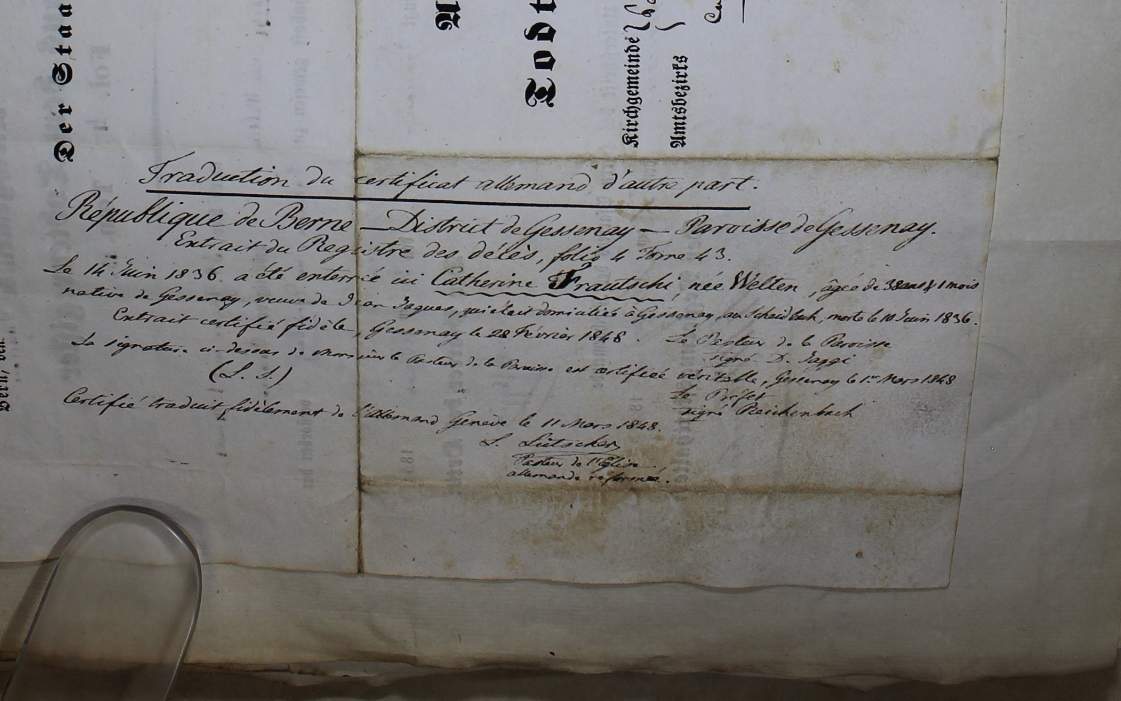 Der Staa
Todt
Kirchgemeinde
Amtsbezirks
Bern, den
Traduction du certificat allemand d'autre part.
République de Berne — District de Gessenay — Paroisse de Gessenay.
Extrait du Registre des décès, folio 4 Torne 43.
Le 14 Juin 1836 a été enterrée ici Catherine Frautschi, née Welten, âgée de 38 ans 4 1 mois
native de Gessenay, veuve de Jean Jaques, qui était domiciliée à Gessenay, au Scheidbach, morte le 10 Juin 1836.
Extrait certifié fidèle, Gessenay le 28 Février 1848. Le Pasteur de la Paroisse
signé D. Jaggi
La signature ci-dessus de Monsieur le Pasteur de la Paroisse est certifiée véritable, Gessenay le 1er Mars 1848
(L. S.) Le Préfet
signé Reichenbach
Certifié traduit fidèlement de l'allemand Genève le 11 Mars 1848.
L. Lütscher
Pasteur de l'Eglise
allemande réformée.